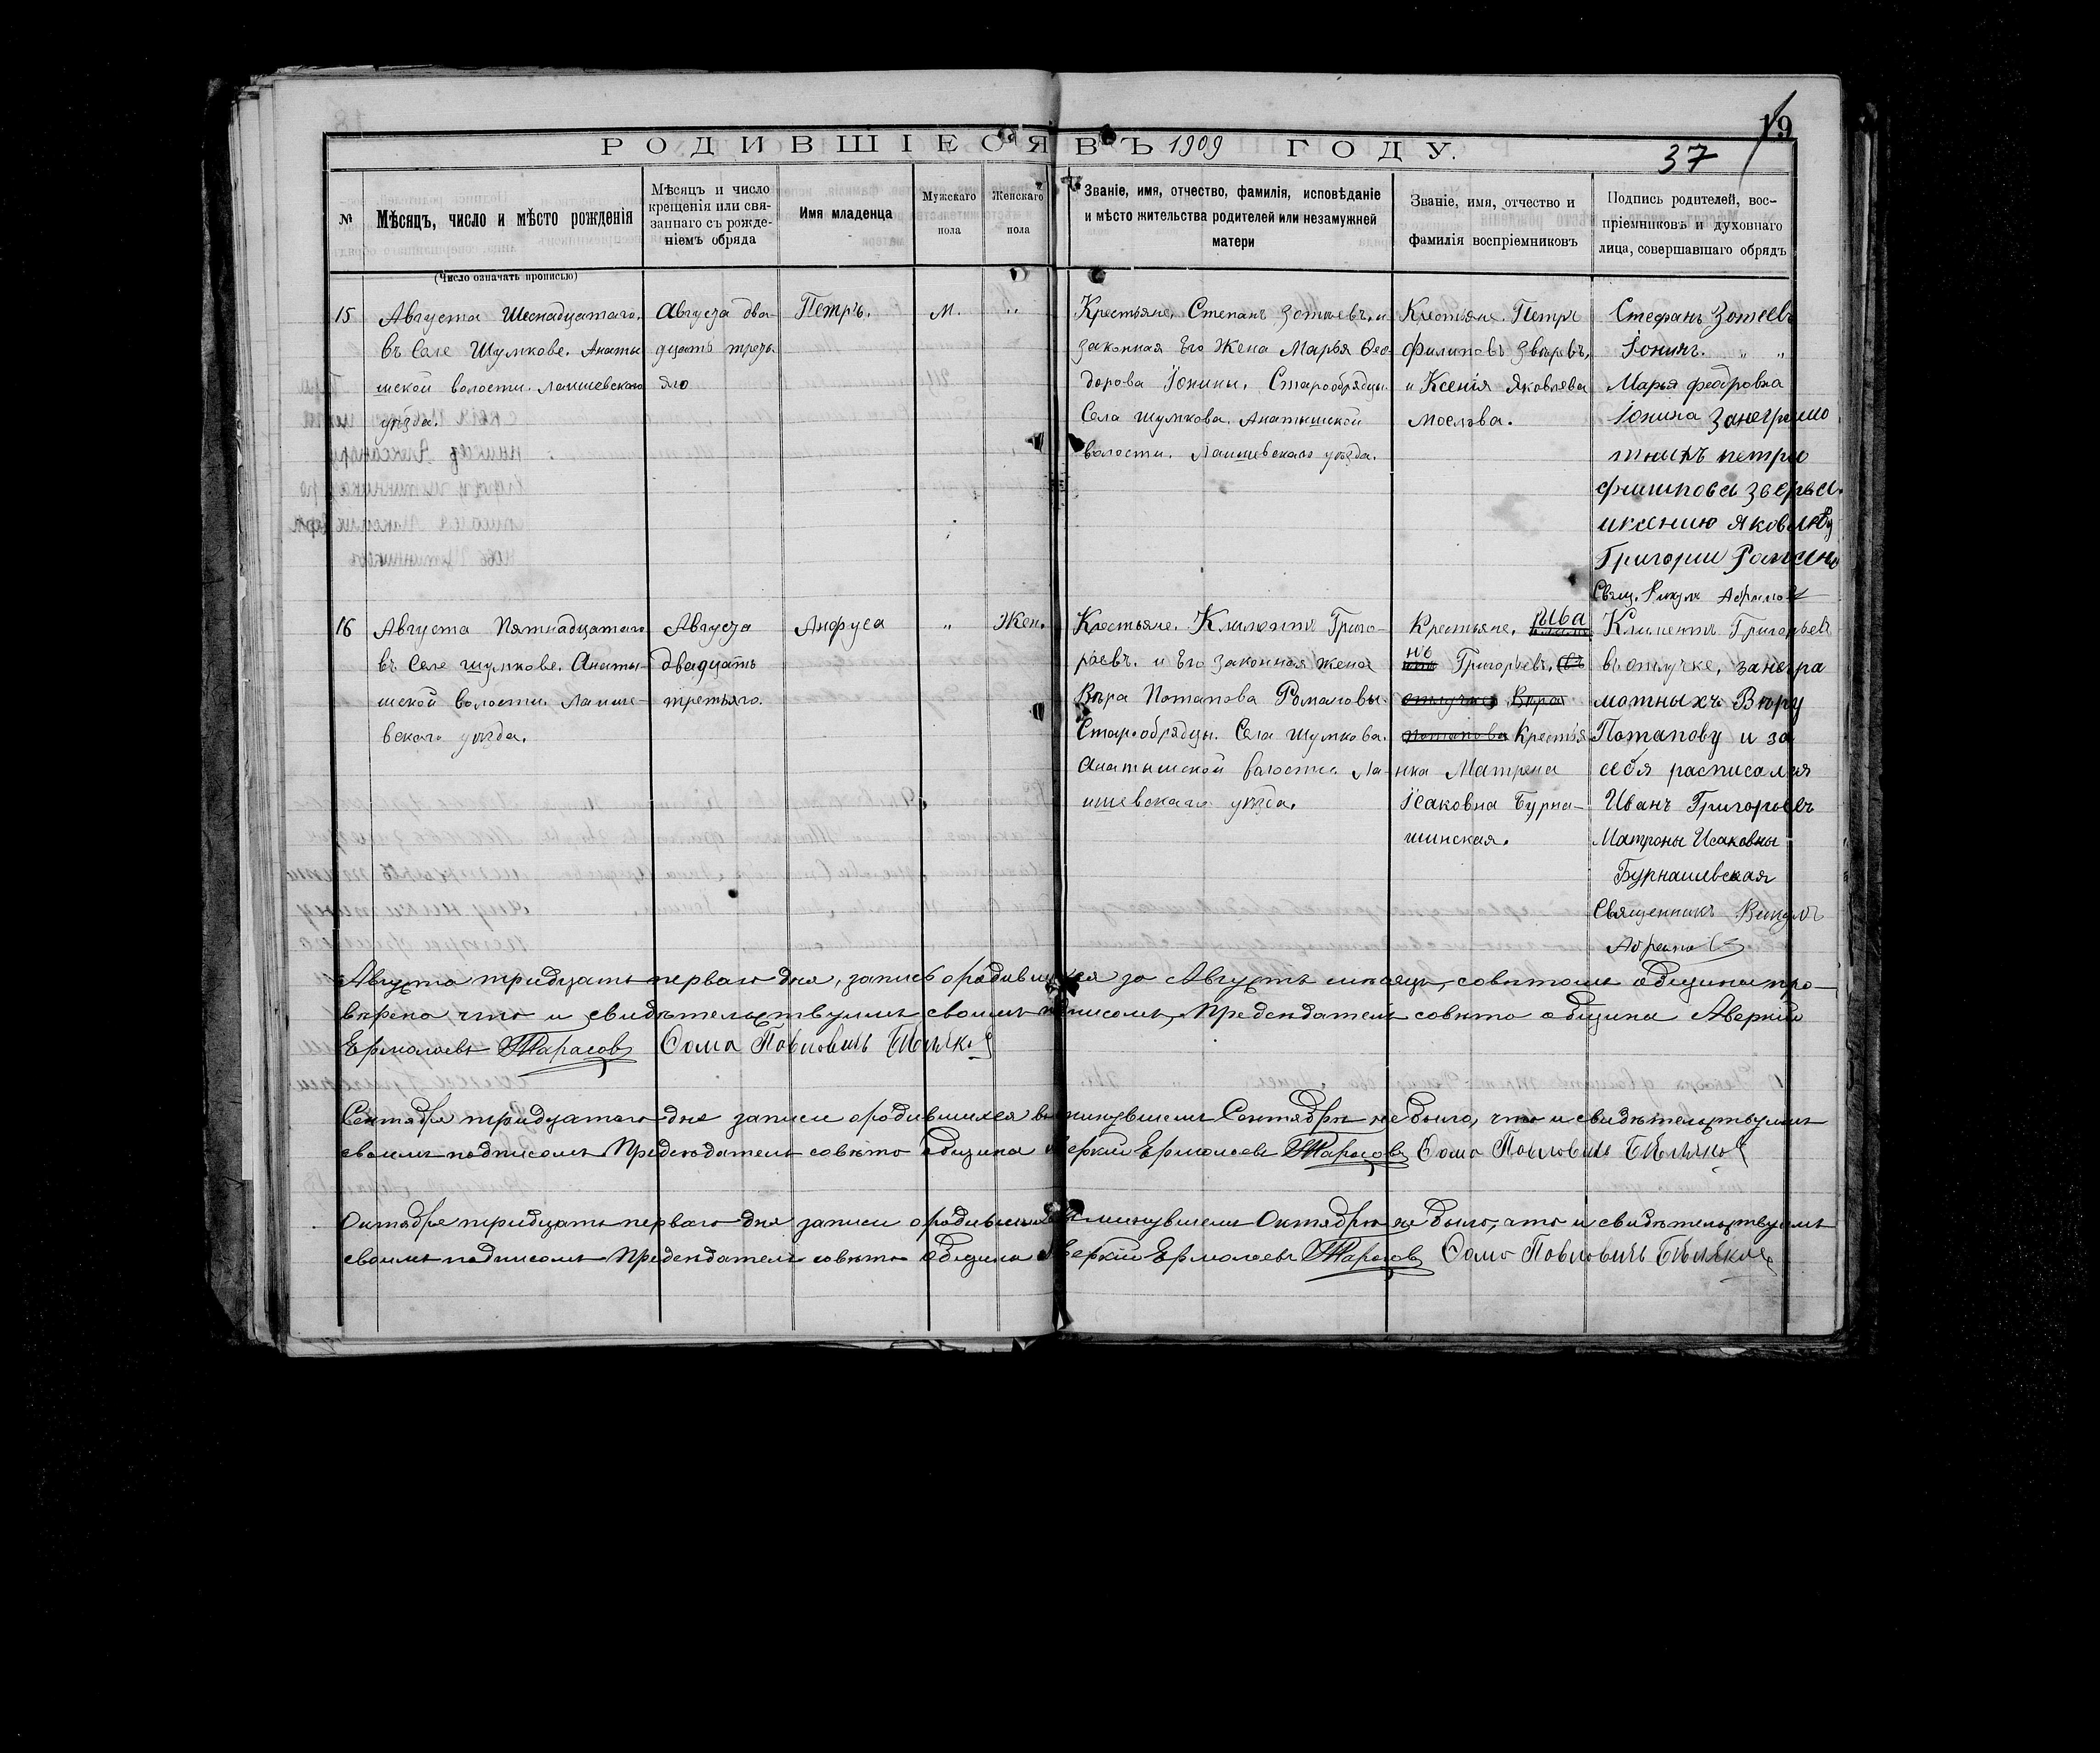 19
РОДИВШІЕСЯ ВЪ 1909 ГОДУ.
37
№
Мѣсяцъ, число и мѣсто рожденія
(Число означать прописью)
Мѣсяцъ и число
крещенія или свя-
заннаго съ рожде-
ніемъ обряда
Имя младенца
Мужскаго
пола
Женскаго
пола
Званіе, имя, отчество, фамилія, исповѣданіе
и мѣсто жительства родителей или незамужней
матери
Званіе, имя, отчество и
фамилія воспріемниковъ
Подпись родителей, вос-
пріемниковъ и духовнаго
лица, совершавшаго обрядъ
15
Августа Шеснадцатаго.
въ Селе Шумкове. Анаты
шской волости. Лаишевскаго
уѣзда.
Августа два-
дцать треть
яго
Петръ.
М.
"
Крестьяне, Степанъ Зотѣевъ. и
законная Его Жена Марья Ѳео-
дорова Іонины. Старообрядцы
Села Шумкова. Анатышской
волости. Лаишевскаго уѣзда.
Крестьяне. Петръ
Филиповъ Звѣревъ,
и Ксенія Яковлева
Стефанъ Зотеевъ
Іонинъ. " "
Марья федровна
Іонина Занеграмо
тныхъ петра
филипова зверева.
иксению яковлеву
Григории
Свящ. Викулъ
16
Августа Пятнадцатаго
въ Селе Шумкове. Анаты-
шской волости. Лаише-
вскаго уѣзда.
Августа
двадцать
третьяго.
Анфуса
"
Жен.
Крестьяне. Климентъ Григо-
рьевъ. и Его законная жена
Вѣра Потапова Романовы.
Старообрядцы. Села Шумкова.
Анатышской волости. Ла-
ишевскаго уѣзда.
Крестьяне. Ива
нъ Григорьевъ. въ
отлучке Вѣра
потапова Крестья
нка Матрена
Ісаковна Бурна-
шинская.
Климентъ Григорьевъ
въ отлучке, за негра
мотныхъ Вѣру
Потапову и за
себя расписался
Иванъ Григорьевъ
Матроны Исаковны
Бурнашевская
Священникъ Викулъ
Августа тридцать перваго дня, запись о родившихся за Августъ мѣсяцъ, совѣтомъ общины про-
вѣрена что и свидѣтельствуемъ своимъ подписомъ, Предсѣдатель совѣта община Аверкий
Ермолаевъ Тарасовъ Ѳома Павловичь
Сентября тридцатаго дня записи о родившихся въ минувшемъ Сентябрѣ не было, что и свидѣтельствуемъ
своимъ подписомъ Предсѣдатель совѣта община Аверкий Ермолаевъ Тарасовъ Ѳома Павловичь
Октября тридцать перваго дня записи о родившихся въ минувшемъ Октябрѣ не было, что и свидѣтельствуемъ
своимъ подписомъ Предсѣдатель совѣта община Аверкий Ермолаевъ Тарасовъ Ѳома Павловичь